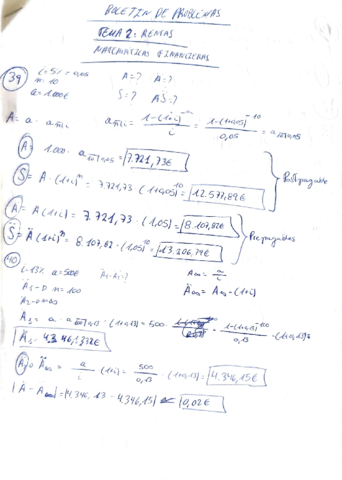 BOLETIN DE PROBLEMAS
TEMA 2: RENTAS
MATEMATICAS FINANCIERAS
39 i=5% = 0,05 A=? Ä=?
n=10 S=? S̈=?
a=1.000€
A= a · an¬i an¬i = 1-(1+i)^-n / i = 1-(1+0,05)^-10 / 0,05 = a10¬0,05
A= 1.000 · a10¬0,05 = 7.721,73€
S= A · (1+i)^n = 7.721,73 (1+0,05)^10 = 12.577,89€ Postpagable
Ä= A(1+i) = 7.721,73 · (1,05) = 8.107,82€
S̈= Ä(1+i)^n = 8.107,82 · (1,05)^10 = 13.206,79€ Prepagables
40 i=13% a=500€ A∞ = a/i
Ä1 → n=100 Ä∞ = A∞ · (1+i)
Ä2 → n=∞
Ä1 = a · a100¬0,13 · (1+0,13) = 500 · 1-(1+0,13)^-100 / 0,13 · (1+0,13)
Ä1 = 4.346,1332€
Ä∞ = a/i · (1+i) = 500/0,13 · (1+0,13) = 4.346,15€
|Ä - A∞| = |4.346,13 - 4.346,15| = 0,02€